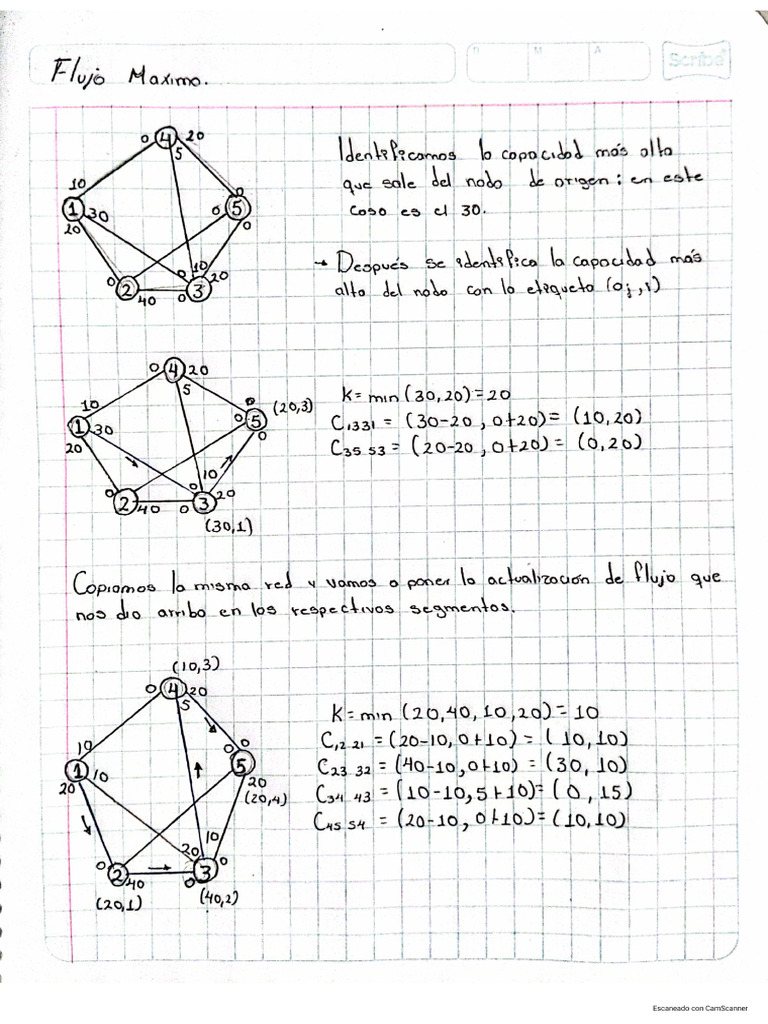 Flujo Maximo.
D M A
Scribe
0 4 20
5
10
0 5
0
1 30
20
0 10
0 2 40 0 3 20
Identificamos la capacidad más alta
que sale del nodo de origen; en este
caso es el 30.
→ Después se identifica la capacidad más
alta del nodo con la etiqueta (0j,1)
0 4 20
5
10
0 (20,3)
0 5
0
1 30
20
0 10
0 2 40 0 3 20
(30,1)
K=min(30,20)=20
C1331 = (30-20, 0+20) = (10,20)
C35 53 = (20-20, 0+20) = (0,20)
Copiamos la misma red y vamos a poner la actualización de flujo que
nos dio arriba en los respectivos segmentos.
(10,3)
0 4 20
5
10
0 0
5
20
(20,4)
1 10
20
10
20 0
0 2 40 0 3
(20,1) (40,2)
K=min (20,40,10,20)=10
C12 21 = (20-10, 0+10) = (10,10)
C23 32 = (40-10, 0+10) = (30, 10)
C34 43 = (10-10, 5+10)= (0, 15)
C45 54 = (20-10, 0+10)= (10,10)
Escaneado con CamScanner